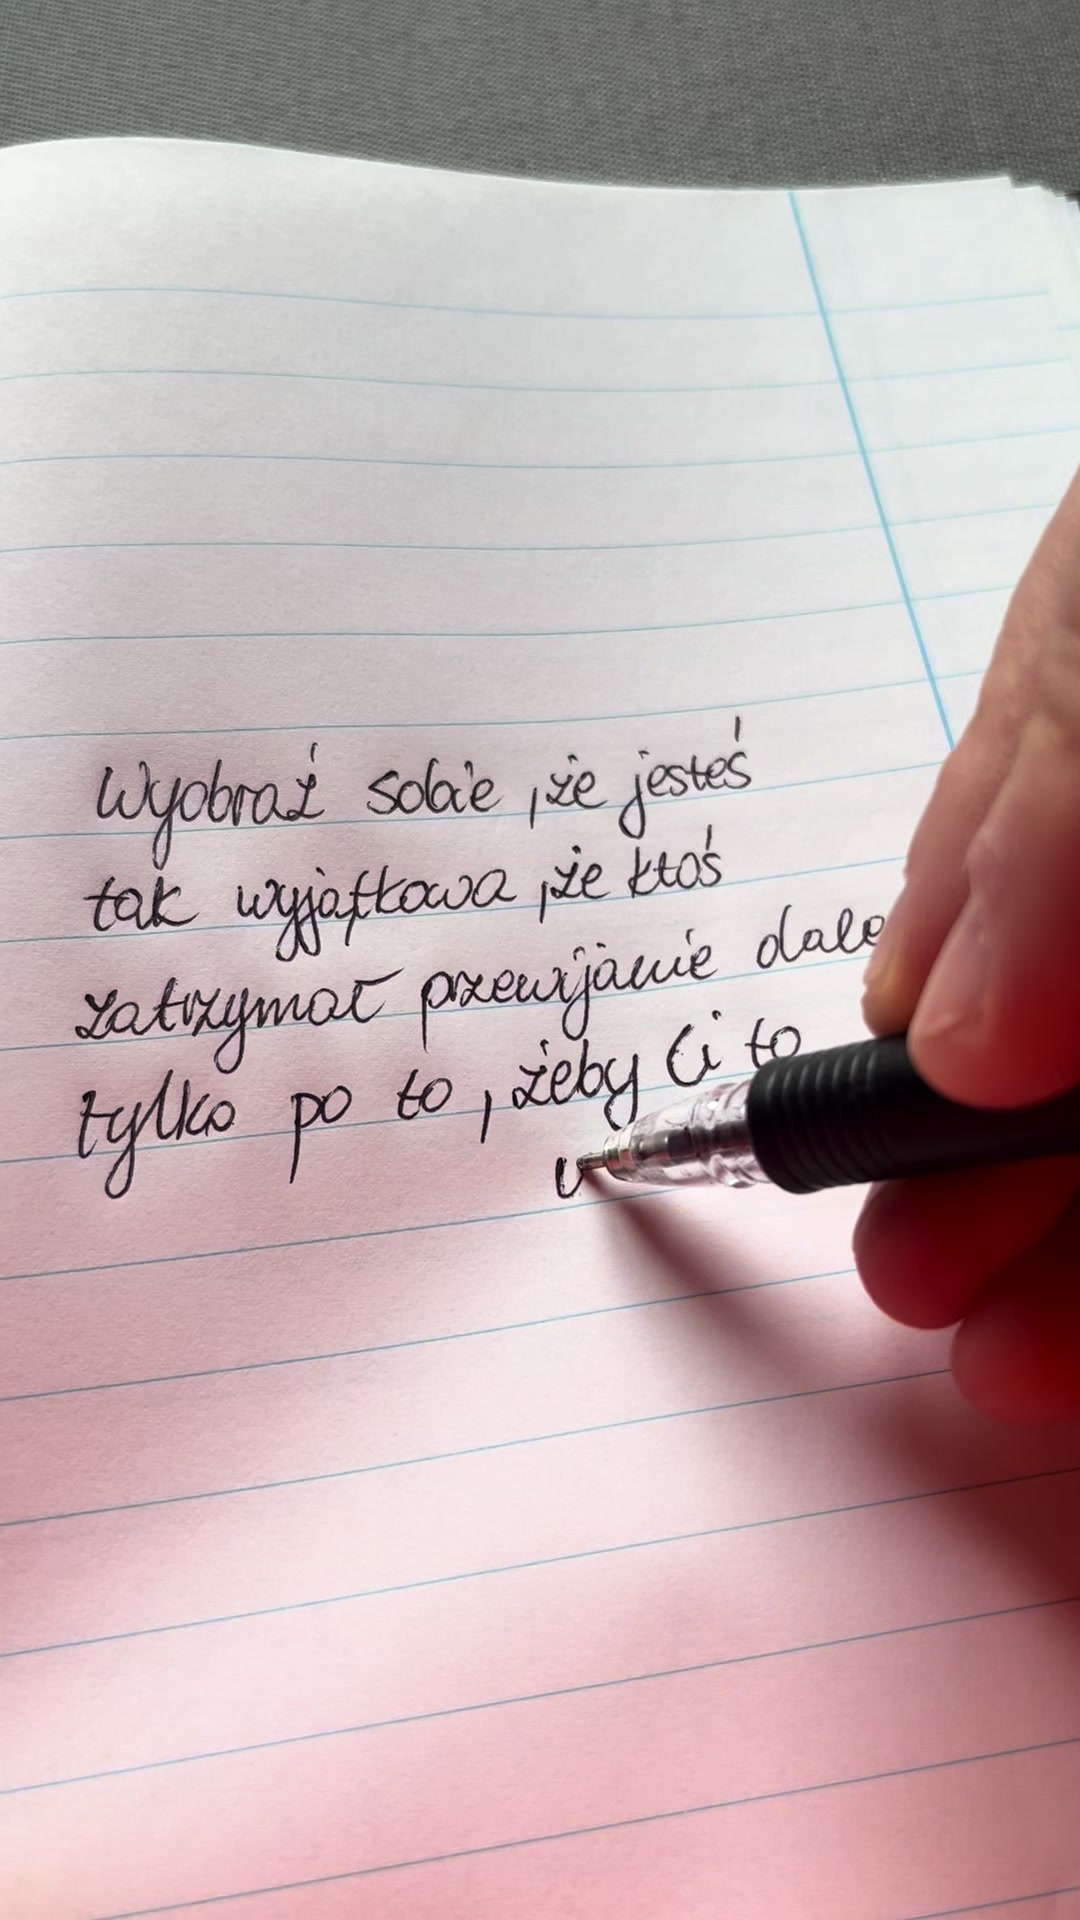 Wyobraź sobie, że jesteś
tak wyjątkowa, że ktoś
zatrzymał przewijanie dale
tylko po to, żeby Ci to